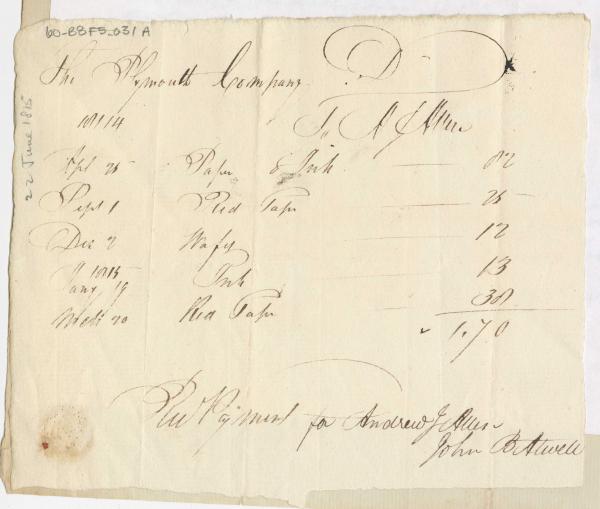 60-B8F5-031A
The Plymouth Company Dr
1814 To A J Allen
Apl 25 Paper & Ink 82
Sept 1 Red Tape 25
Dec 2 Wafers 12
1815
Jany 19 Ink 13
March 20 Red Tape 38
1.70
Recd Payment for Andrew J Allen
John B Atwell
22 June 1815